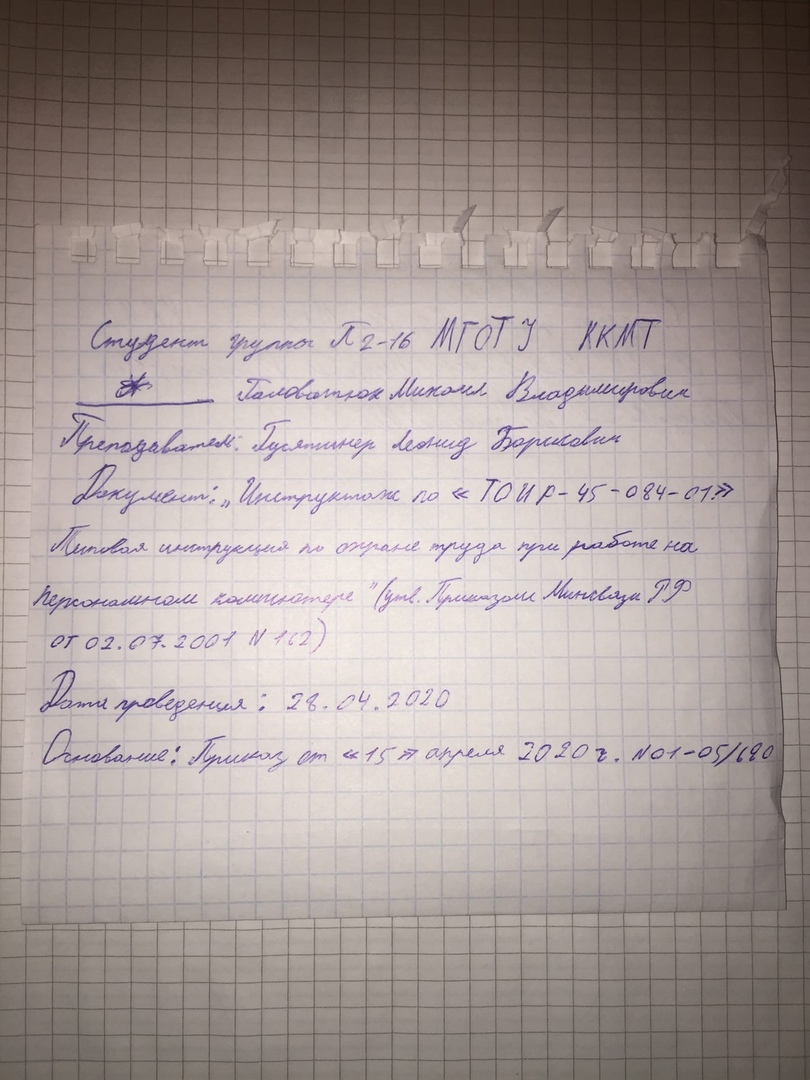 Студент группы П2-16 МГОТУ ККМТ
Головатюк Михаил Владимирович
Преподаватель: Гусятинер Леонид Борисович
Документ: „Инструктаж по «ТОИ Р-45-084-01»
Типовая инструкция по охране труда при работе на
персональном компьютере" (утв. Приказом Минсвязи РФ
от 02.07.2001 N 162)
Дата проведения: 28.04.2020
Основание: Приказ от «15» апреля 2020г. №01-05/690